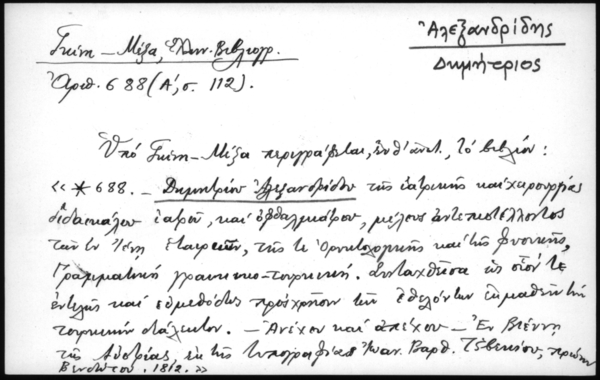 Γκίνη – Μέξα, Ἑλλην. Βιβλιογρ.
Ἀριθ. 688 (Α', σ. 112).
Ἀλεξανδρίδης
Δημήτριος
Ὑπό Γκίνη – Μέξα περιγράφεται, ἐνθ' ἀνωτ., τό βιβλίον:
«*688. – Δημητρίου Ἀλεξανδρίδου τῆς ἰατρικῆς καί χειρουργίας
διδασκάλου ἰατροῦ, καί ὀφθαλμιάτρου, μέλους ἀντεπιστέλλοντος
τῶν ἐν Ἰένῃ ἑταιρειῶν, τῆς τε Ὀρυκτολογικῆς καί τῆς Φυσικῆς,
Γραμματική γραικικο-τουρκική. Συνταχθεῖσα ὡς οἷόν τε
ἐντελής καί εὐμεθόδως πρός χρῆσιν τῶν ἐθελόντων ἐκμαθεῖν τήν
τουρκικήν διάλεκτον. – Ἀνέχου καί ἀπέχου – Ἐν Βιέννῃ
τῆς Αὐστρίας, ἐκ τῆς τυπογραφίας Ἰωαν. Βαρθ. Τσβεκίου, πρώην
Βενδότου. 1812.»